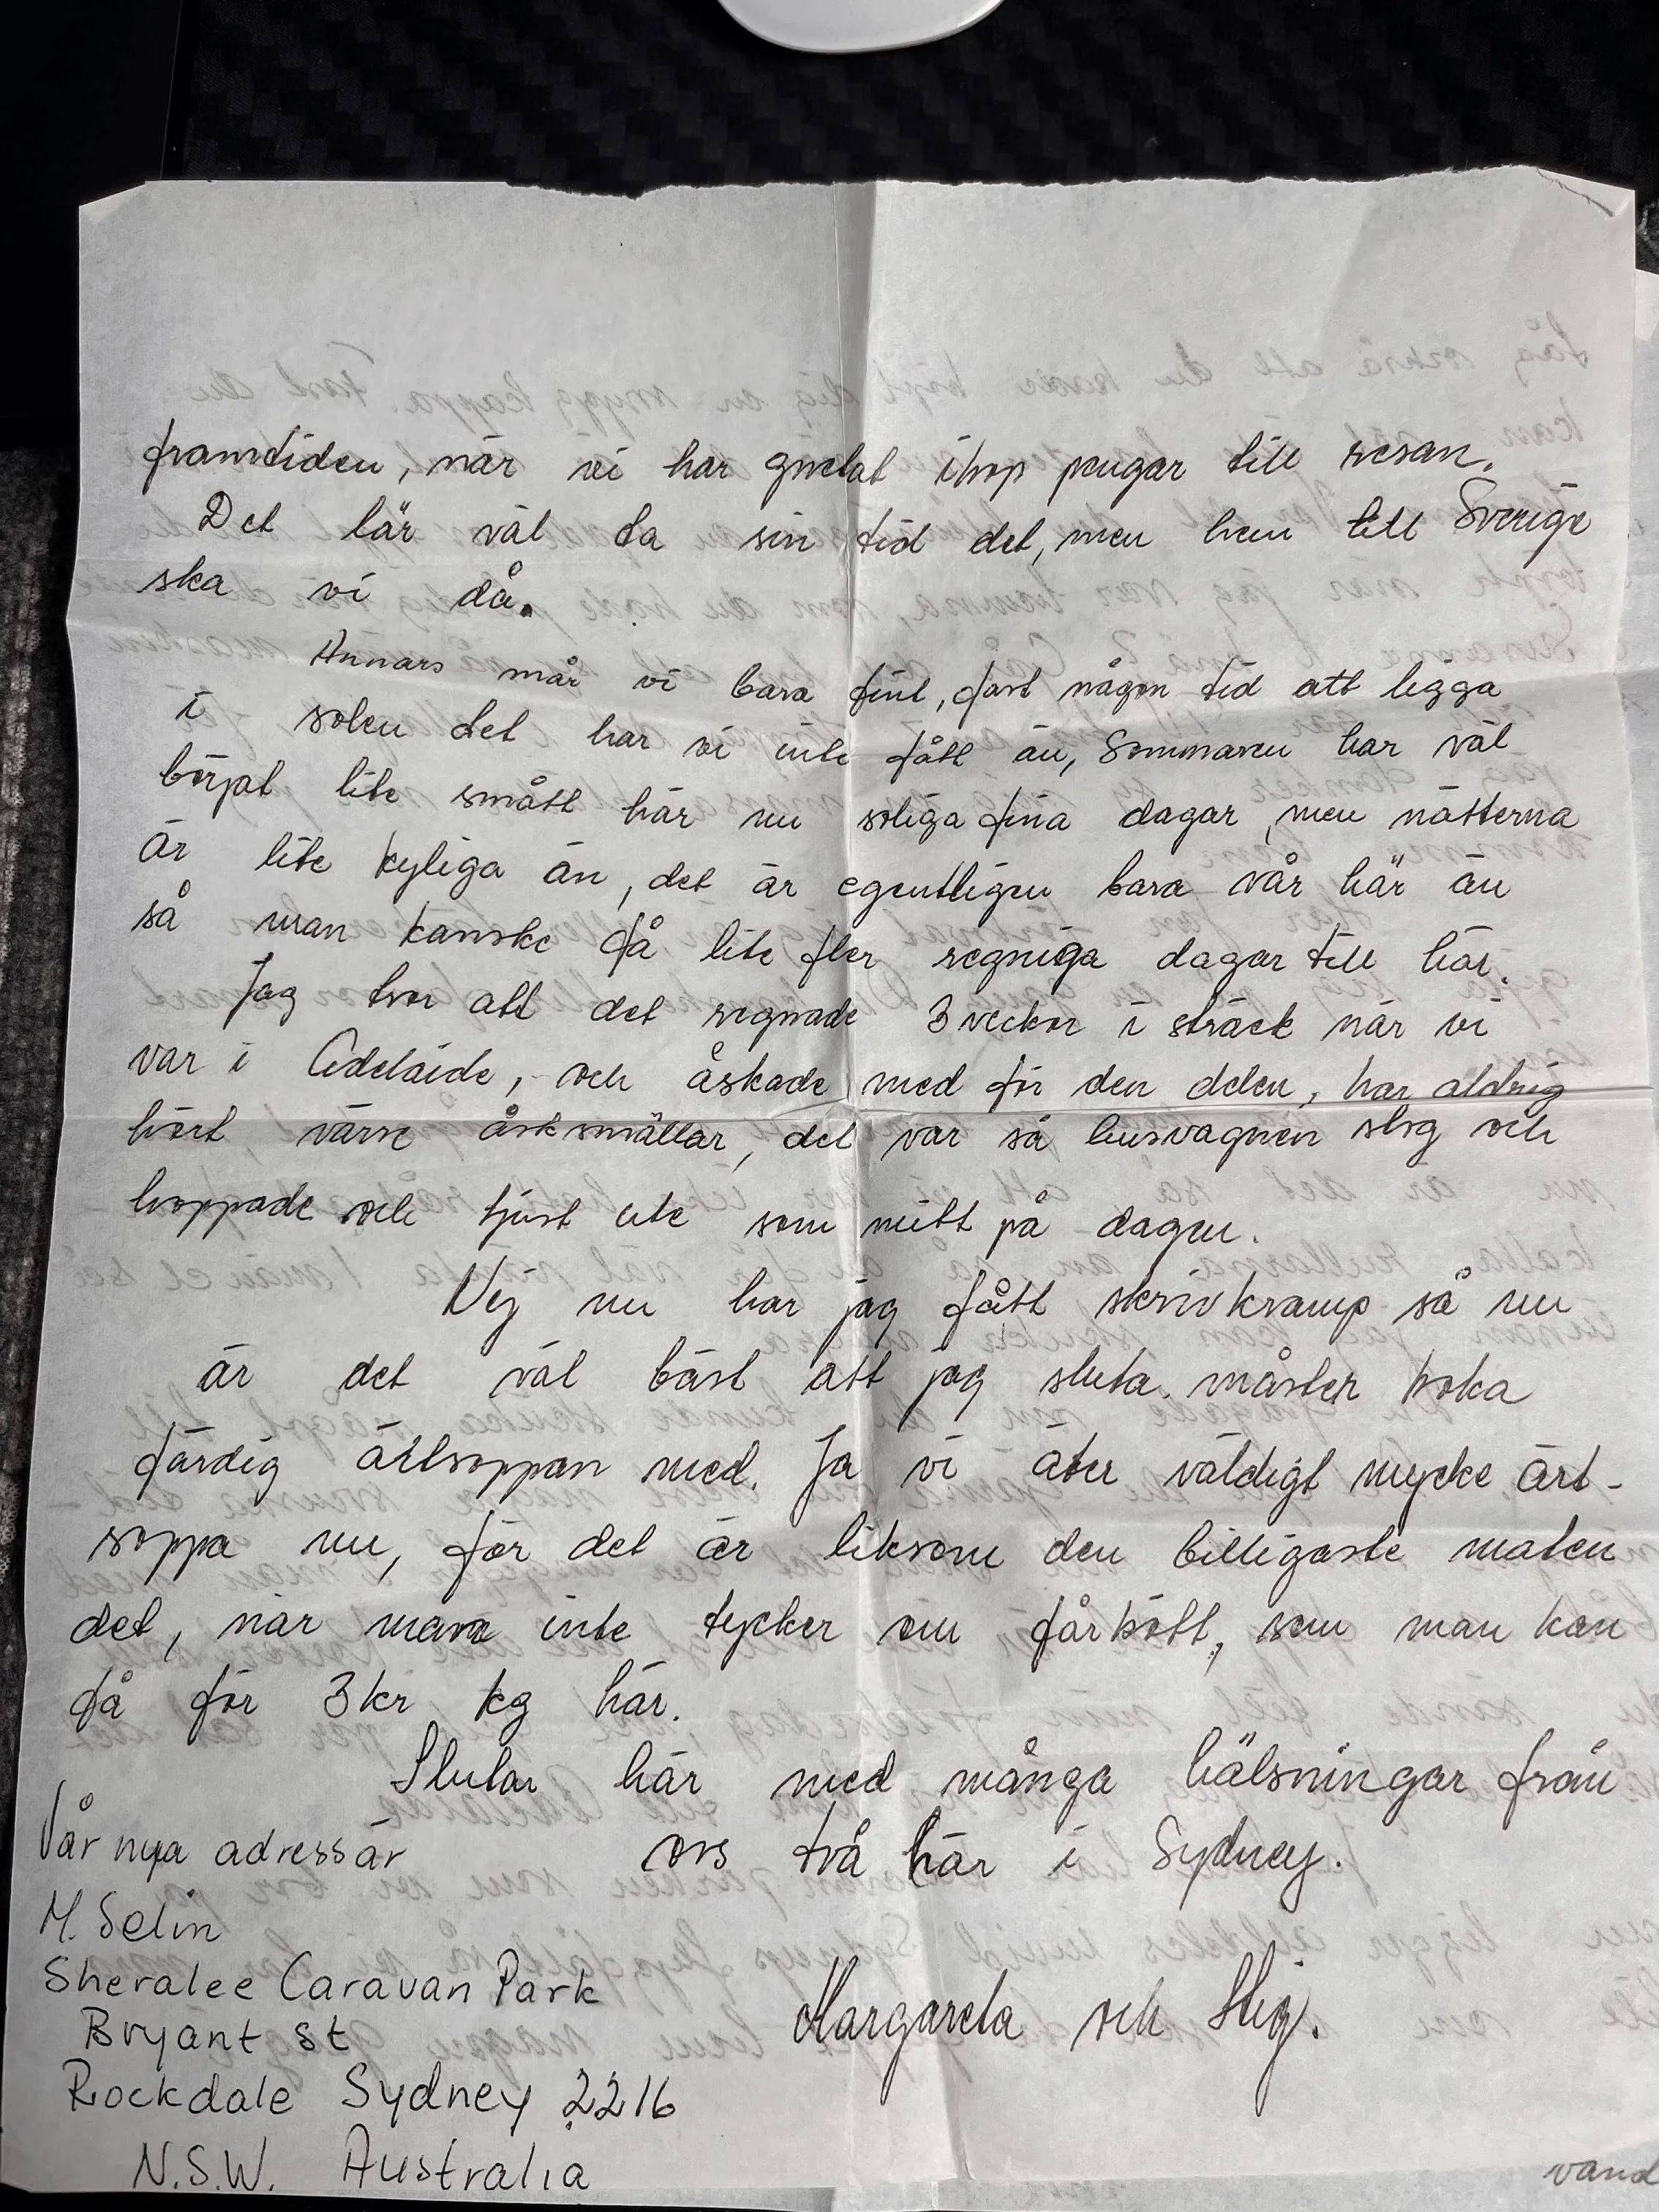 framtiden, när vi har gnetat ihop pengar till resan.
Det lär väl ta sin tid det, men hem till Sverige
ska vi då.
Annars mår vi bara fint, fast någon tid att ligga
i solen det har vi inte fått än, Sommaren har väl
börjat lite smått här nu soliga fina dagar, men nätterna
är lite kyliga än, det är egentligen bara vår här än
så man kanske få lite fler regniga dagar till här.
Jag tror att det regnade 3 veckor i sträck när vi
var i Adelaide, och åskade med för den delen, har aldrig
hört värre åsksmällar, det var så husvagnen slog och
hoppade och ljust ute som mitt på dagen.
Nej nu har jag fått skrivkramp så nu
är det väl bäst att jag sluta. måster koka
färdig ärtsoppan med. Ja vi äter väldigt mycke ärt-
soppa nu, för det är liksom den billigaste maten
det, när man inte tycker om fårkött, som man kan
få för 3 kr kg här.
Slutar här med många hälsningar från
oss två här i Sydney.
Margareta och Stig.
Vår nya adress är
M. Selin
Sheralee Caravan Park
Bryant st
Rockdale Sydney 2216
N.S.W. Australia
vänd